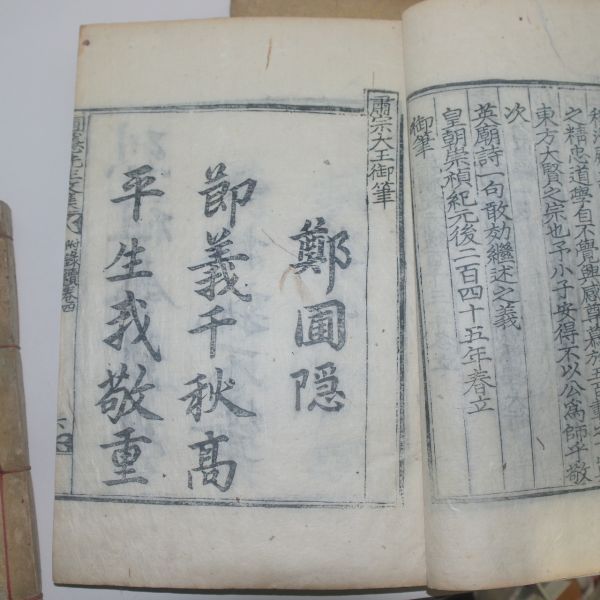 之精忠道學自不覺興感
東方大賢之宗也予小子安得不以公爲師乎敬
次
英廟詩一句敢効繼述之義
皇朝崇禎紀元後二百四十五年春立
御筆
肅宗大王御筆
鄭圃隠
節義千秋髙
平生我敬重
圃隱先生文集 附錄續卷四